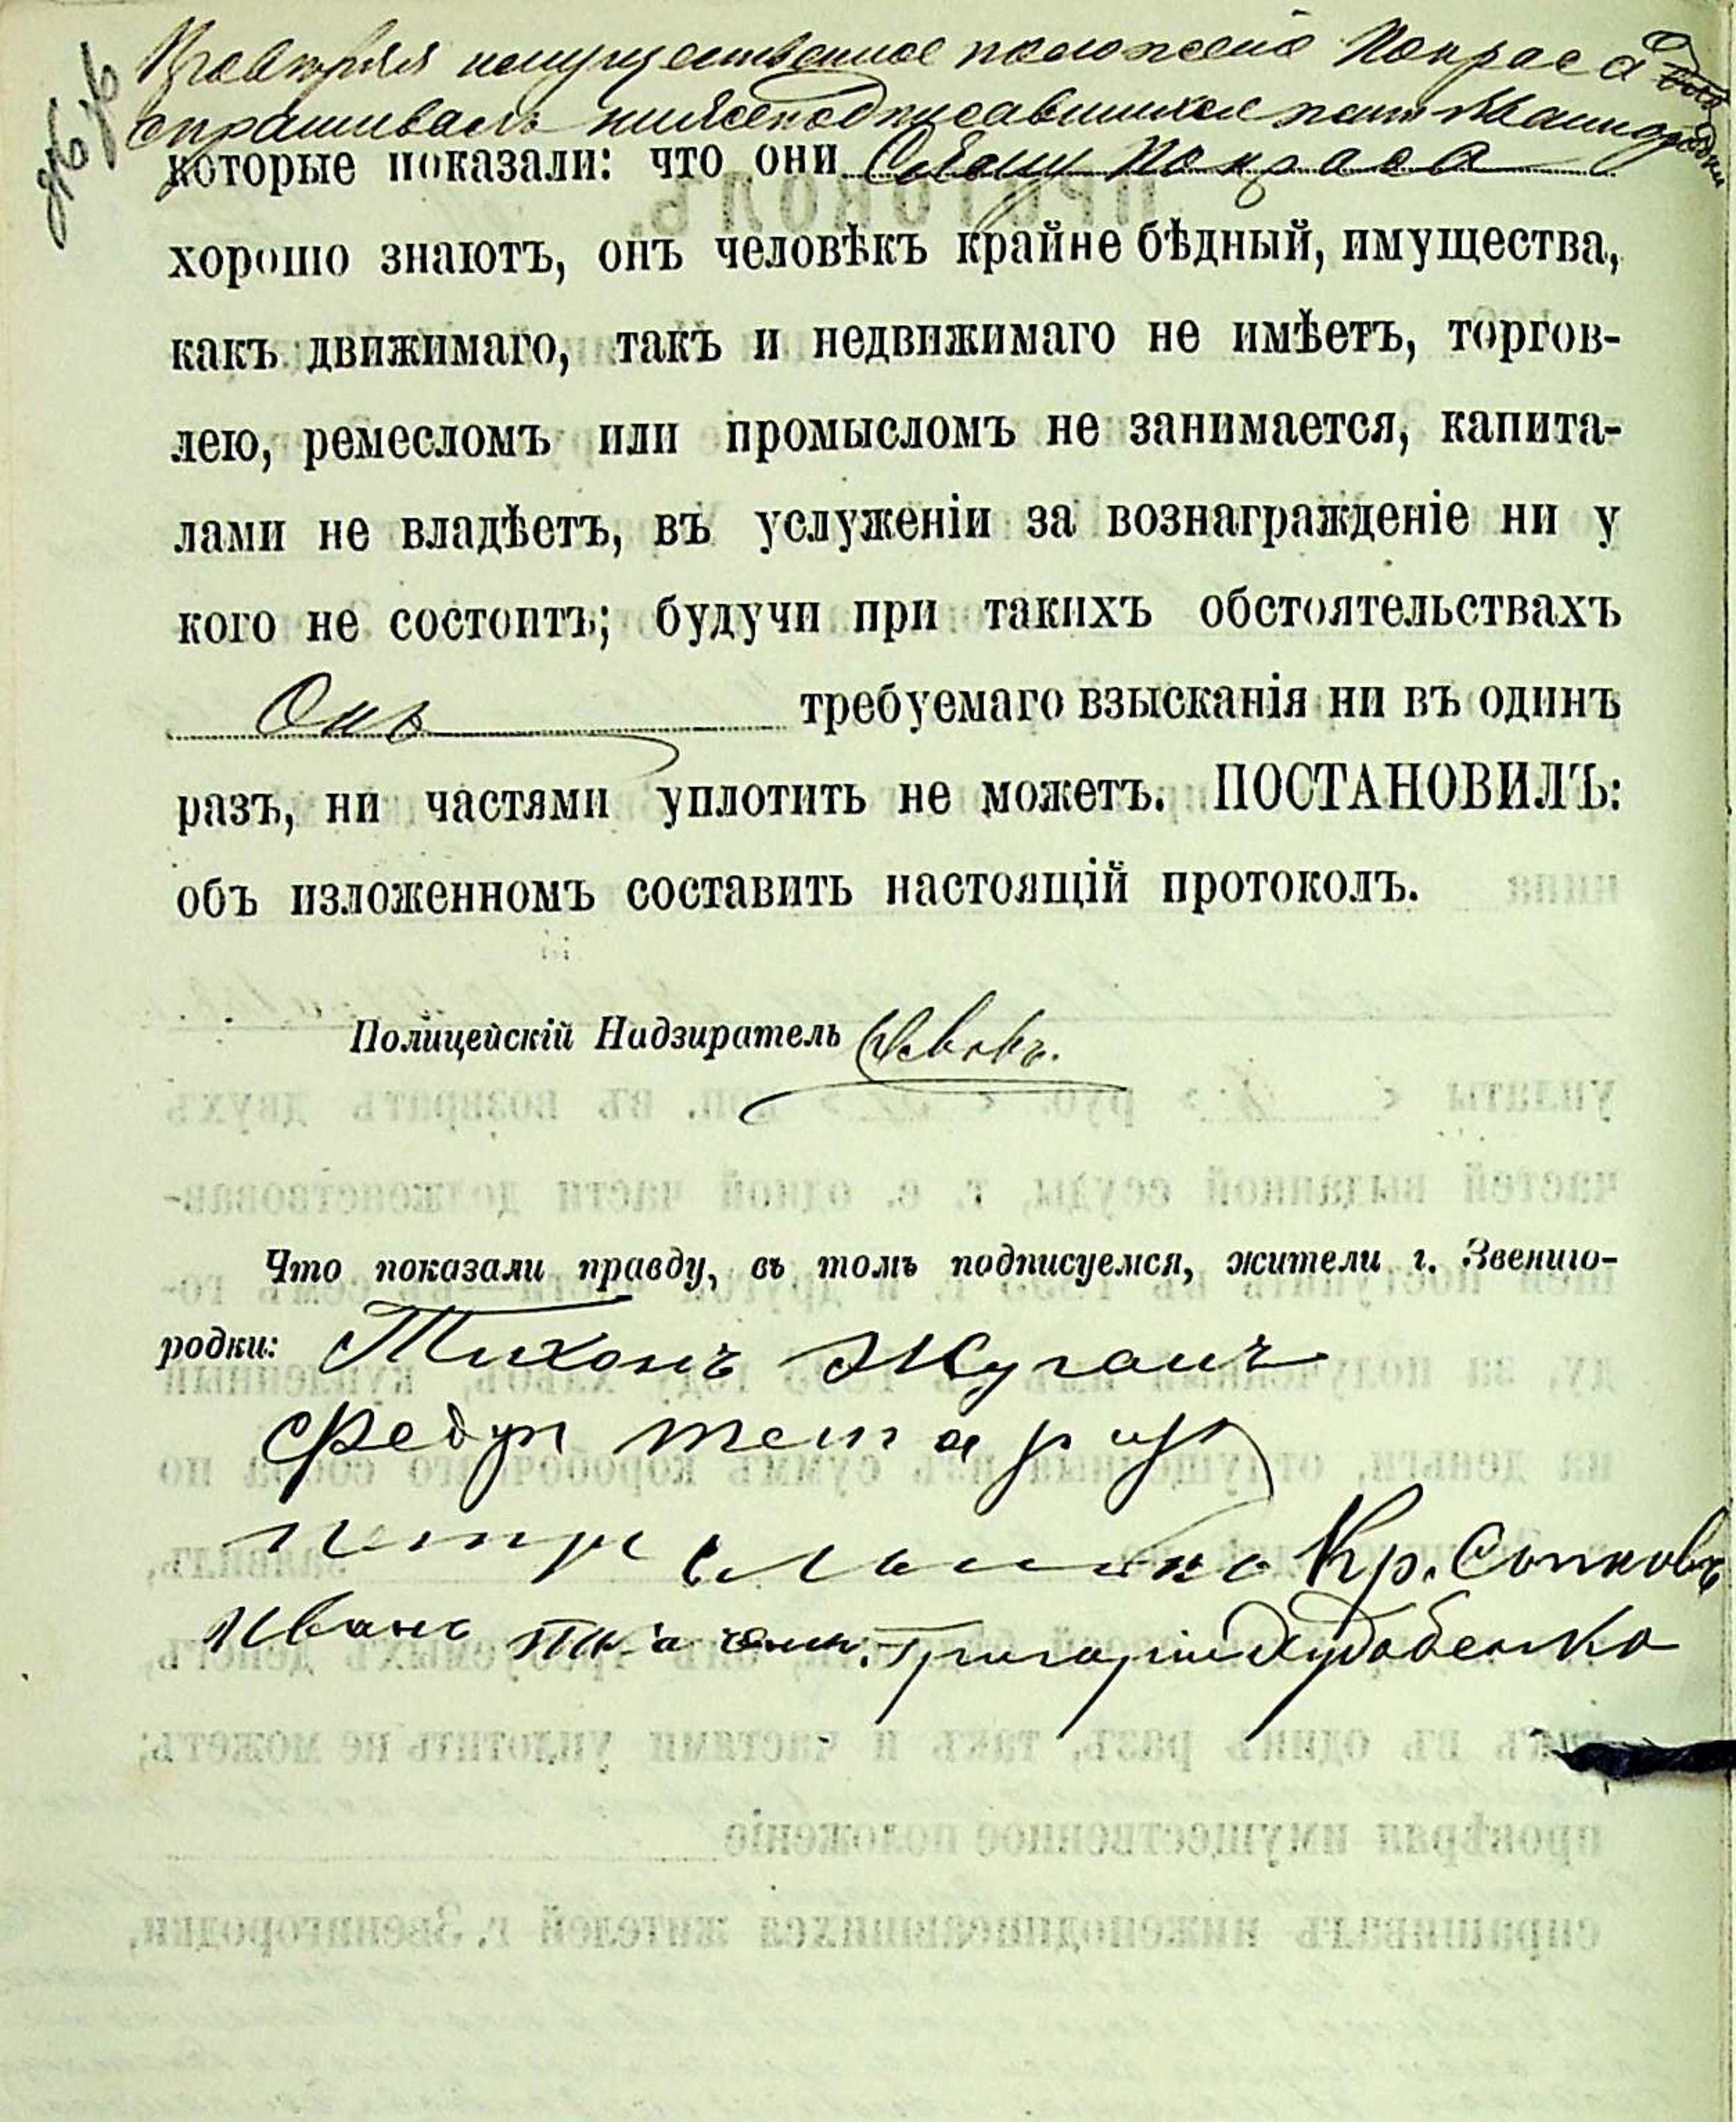 Провѣряя имущественное положеніе Покраса
спрашивалъ нижеподписавшихся
которые показали: что они Покраса
хорошо знаютъ, онъ человѣкъ крайне бѣдный, имущества,
какъ движимаго, такъ и недвижимаго не имѣетъ, торгов-
лею, ремесломъ или промысломъ не занимается, капита-
лами не владѣетъ, въ услуженіи за вознагражденіе ни у
кого не состоитъ; будучи при такихъ обстоятельствахъ
Онъ требуемаго взысканія ни въ одинъ
разъ, ни частями уплотить не можетъ. ПОСТАНОВИЛЪ:
объ изложенномъ составить настоящій протоколъ.
Полицейскій Надзиратель
Что показали правду, въ томъ подписуемся, жители г. Звениго-
родки: Тихонъ Жуганъ
Федур
Кр. Сопковъ
Иванъ Григорій Худобенко